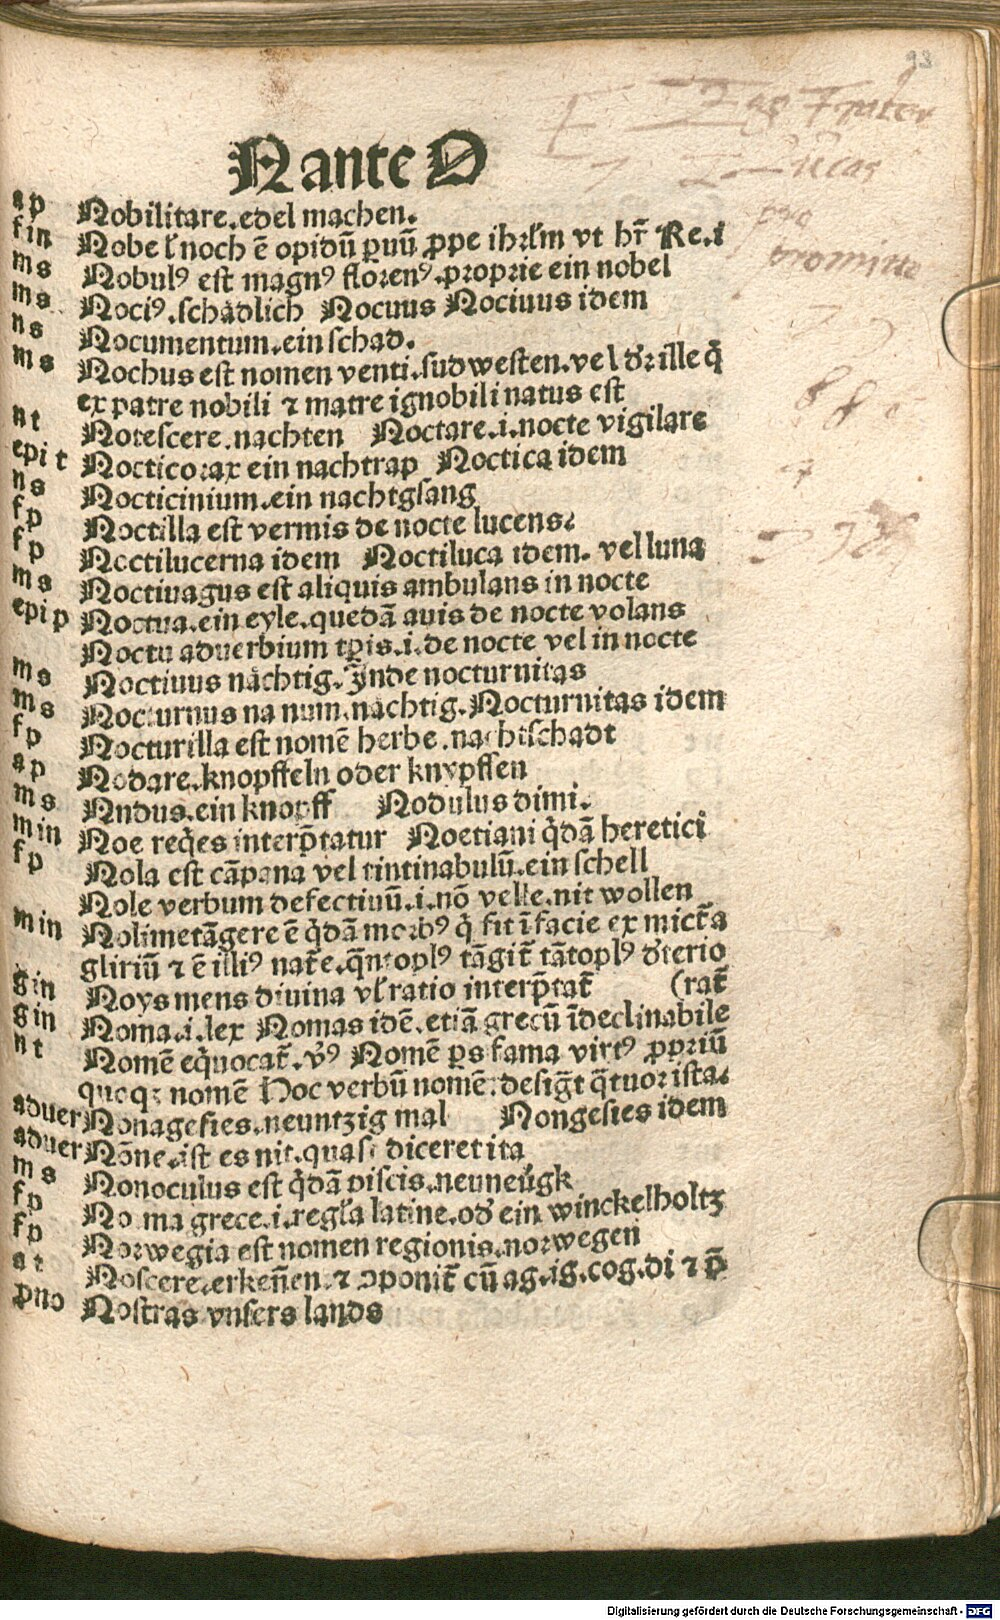 93
Ego Frater
Lucas
pro
promitto
N ante O
ap Nobilitare.edel machen.
fin Nobe ł noch ē opidū ꝑuū ꝓpe ihrłm vt hr̄ Re.i
ms Nobulꝰ est magnꝰ florenꝰ.proprie ein nobel
ms Nociꝰ.schådlich Nocuus Nociuus idem
ns Nocumentum.ein schad.
ms Nochus est nomen venti.sudwesten.vel dr̄ ille q̄
ex patre nobili ⁊ matre ignobili natus est
nt Notescere.nachten Noctare.i.nocte vigilare
epi t Nocticorax ein nachtrap Noctica idem
ns Nocticinium.ein nachtgsang
fp Noctilla est vermis de nocte lucens.
fp Noctilucerna idem Noctiluca idem. vel luna
ms Noctiuagus est aliquis ambulans in nocte
epi p Noctua.ein eyle.quedā auis de nocte volans
Noctu aduerbium tꝑis.i.de nocte vel in nocte
ms Noctiuus nåchtig.Inde nocturnitas
ms Nocturnus na num.nachtig.Nocturnitas idem
fp Nocturilla est nomē herbe.nachtschadt
ap Nodare.knopffeln oder knypffen
ms Nndus.ein knopff Nodulus dimi.
min Noe reqes interp̄tatur Noetiani q̄dā heretici
fp Nola est cāpana vel tintinabulū.ein schell
Nole verbum defectiuū.i.nō velle.nit wollen
min Nolimetāgere ē q̄dā morbꝰ q̄ fit ī facie ex mict̄a
gliriū ⁊ ē illiꝰ nat̄e.q̄ntoplꝰ tāgit̄ tātoplꝰ dterio
gin Noys mens diuina vł ratio interp̄tat̄ (rat̄
gin Noma.i.lex Nomas idē.etiā grecū īdeclinabile
nt Nomē eq̄uocat̄.vꝰ Nomē ꝑs fama virtꝰ ꝓpriū
quoqꝫ nomē Hoc verbū nomē:desigt̄ q̄tuor ista.
aduer Nonagesies.neuntzig mal Nongesies idem
aduer Nōne.ist es nit.quasi diceret ita
ms Nonoculus est q̄dā piscis.neuneůgk
fp No ma grece.i.regła latine.od ein winckelholtz
fp Norwegia est nomen regionis.norwegen
at Noscere.erkeñen.⁊ ꝯponit̄ cū ag.ig.cog.di ⁊ p̄
pno Nostras vnsers lands
Digitalisierung gefördert durch die Deutsche Forschungsgemeinschaft - DFG